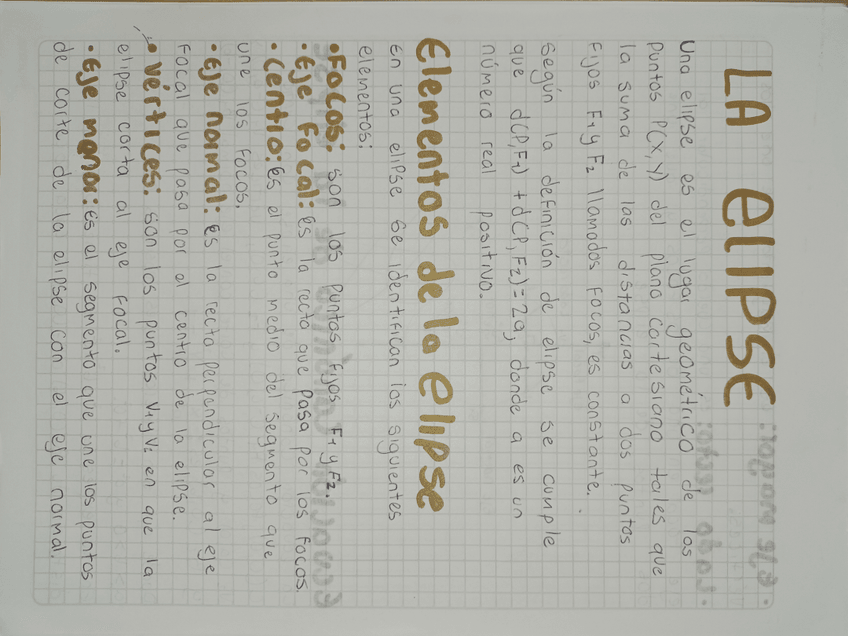 LA ELIPSE
Una elipse es el lugar geométrico de los
puntos P(x,y) del plano cartesiano tales que
la suma de las distancias a dos puntos
fijos F₁ y F₂ llamados focos, es constante.
Según la definición de elipse se cumple
que d(P,F₁) + d(P,F₂)=2a, donde a es un
número real positivo.
Elementos de la elipse
En una elipse se identifican los siguientes
elementos:
•Focos: son los puntos fijos F₁ y F₂.
•Eje focal: Es la recta que pasa por los focos
•Centro: Es el punto medio del segmento que
une los focos.
•Eje normal: Es la recta perpendicular al eje
focal que pasa por el centro de la elipse.
•Vértices: son los puntos V₁ y V₂ en que la
elipse corta al eje focal.
•Eje menor: Es el segmento que une los puntos
de corte de la elipse con el eje normal.